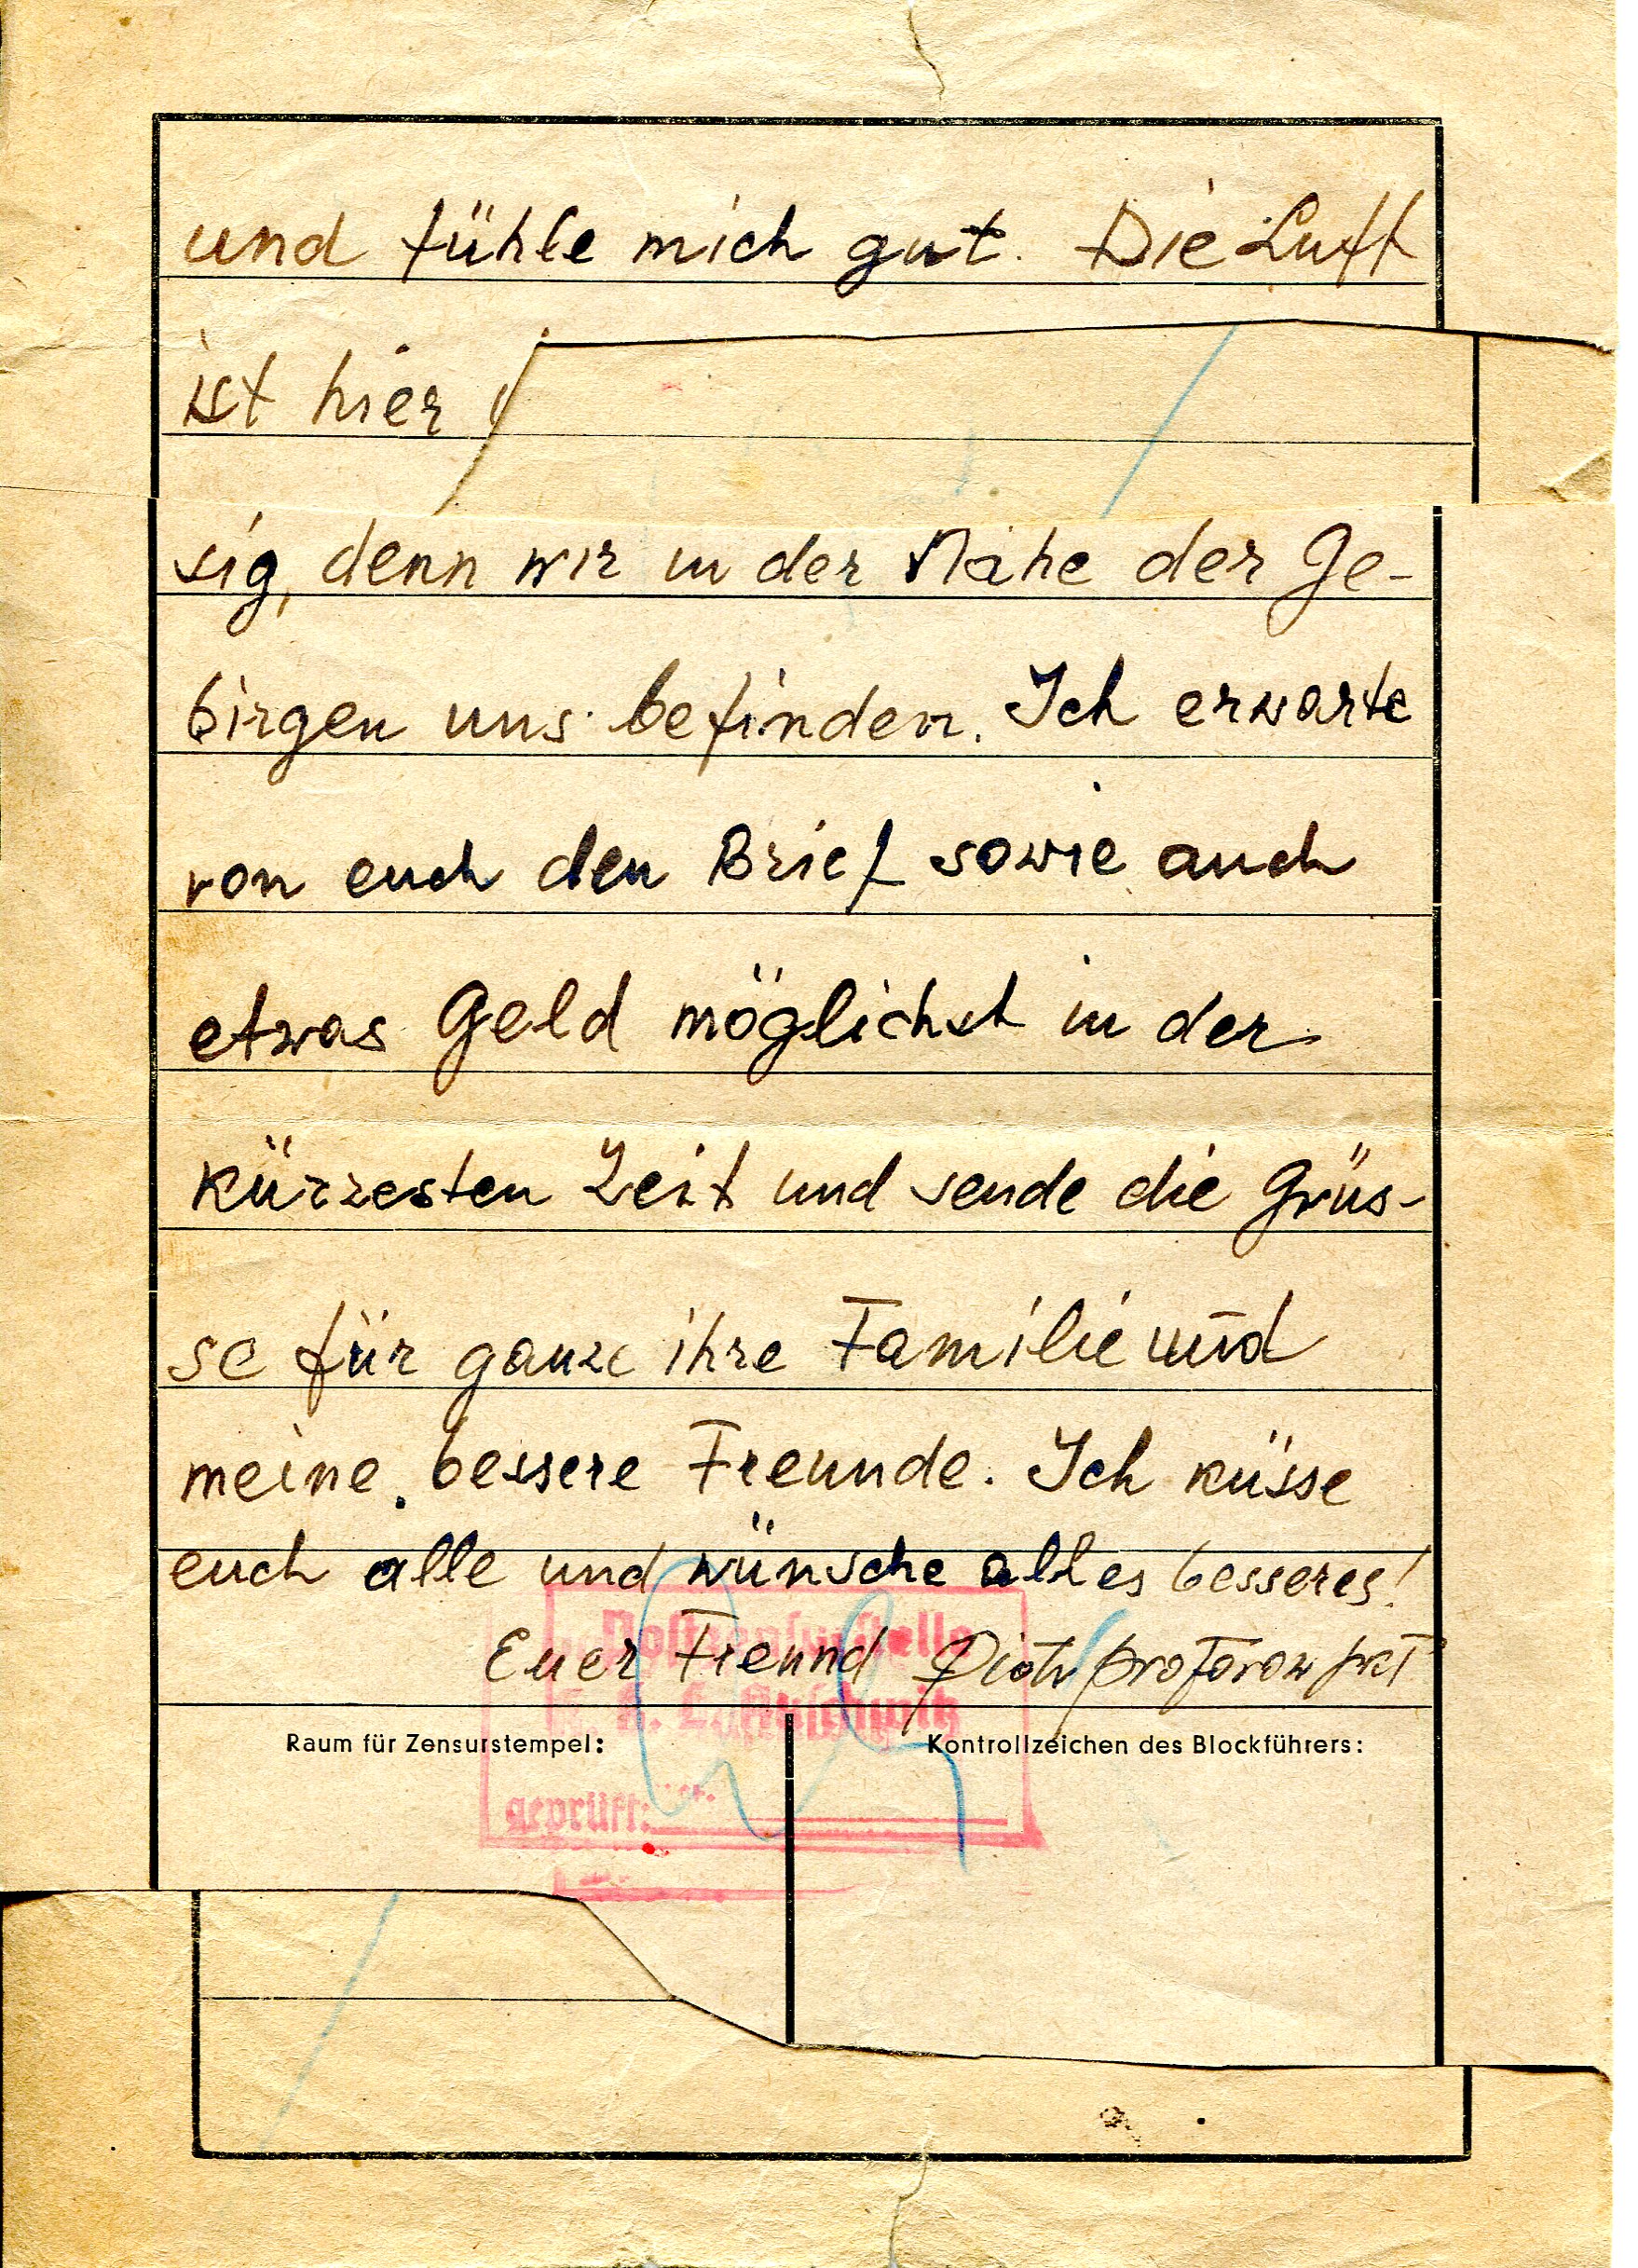 und fühle mich gut. Die Luft
ist hier
sig, denn wir in der Nähe der Ge-
birgen uns befinden. Ich erwarte
von euch den Brief sowie auch
etwas Geld möglichst in der
kürzesten Zeit und sende die Grüs-
se für ganze ihre Familie und
meine bessere Freunde. Ich küsse
euch alle und wünsche alles besseres!
Euer Freund Piotr
Postzensurstelle
K. L. Auschwitz
geprüft:
Raum für Zensurstempel:
Kontrollzeichen des Blockführers: